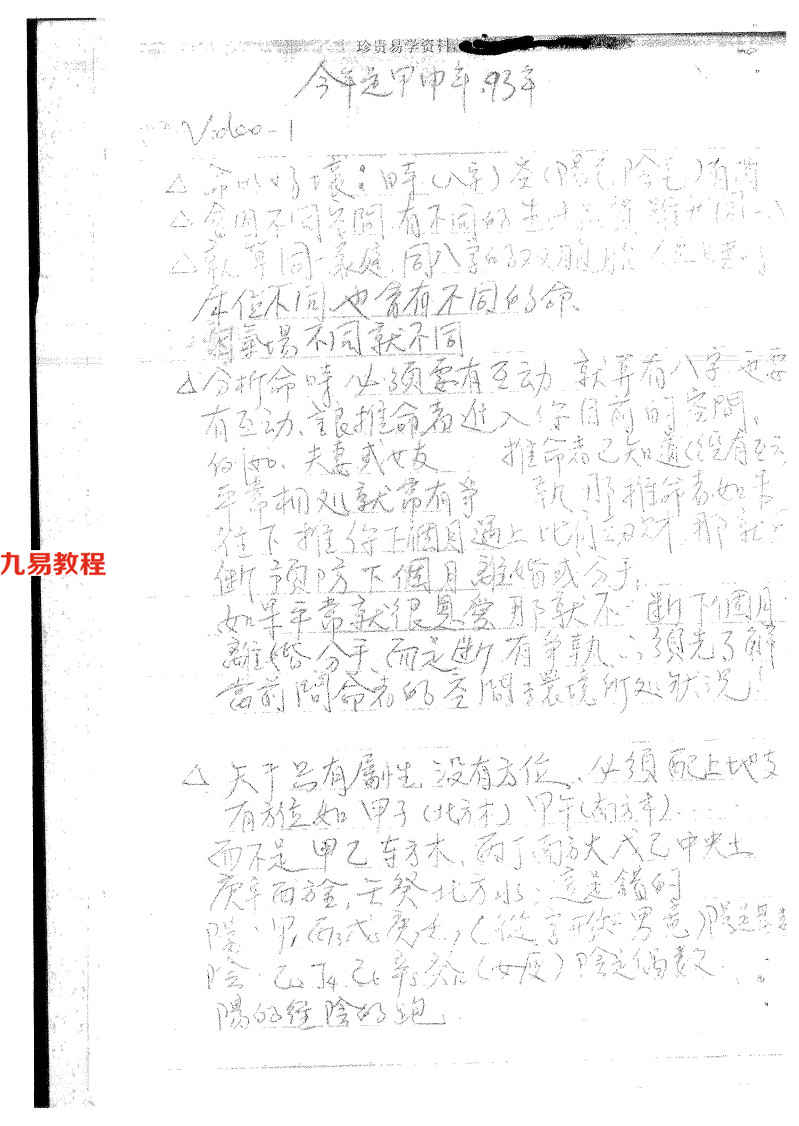 珍贵易学资料
今年是甲申年.93年
Video-1
△ 命的好壞:時(八字)空(陽宅 陰宅)有關
△ 會因不同空間 有不同的
△ 就算同一家庭 同八字的双胞胎
床位不同.也會有不同的命.
因氣場不同就不同
△ 分析命時 必須要有互动 就算有八字 也要
有互动、讓推命者进入你目前的空間。
例如、夫妻或女友 推命者已知道(没有互动
平常相处就常有争 執 那推命者如果
往下推你下個月遇上比肩劫财 那就
断預防下個月離婚或分手.
如果平常就很恩爱那就不断下個月
離婚分手、而是断有争執、必須先了解
當前問命者的空間環境所处狀况!
△ 天干只有屬性 没有方位、必須配上地支
有方位如 甲子(北方木) 甲午(南方木).....
而不是甲乙东方木、丙丁南方火戊己中央土
庚辛西方金、壬癸北方水.這是錯的
陽:甲 丙 戊 庚 壬 (從字形 男
陰:乙 丁 己 辛 癸 (女 ) 陰是偶數.
陽的 陰的
九易教程